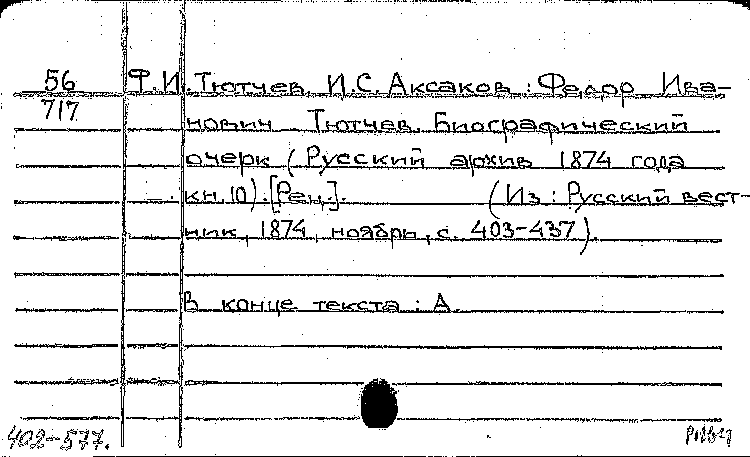 56 Ф.И. Тютчев. И.С. Аксаков: Федор Ива-
717 нович Тютчев. Биографический
очерк (Русский архив 1874 года
кн. 10). [Рец.]. (Из: Русский вест-
ник, 1874, ноябрь, с. 403-437).
В конце текста: А.
402-577.